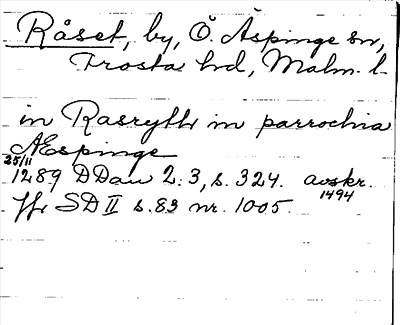 Råset, by, Ö. Äspinge sn,
Frosta hd, Malm. l.
in Rasryth in parrochia
Æspinge
25/11
1289 DDan 2:3, s. 324. avskr.
1494
Jfr SD II s. 83 nr. 1005.